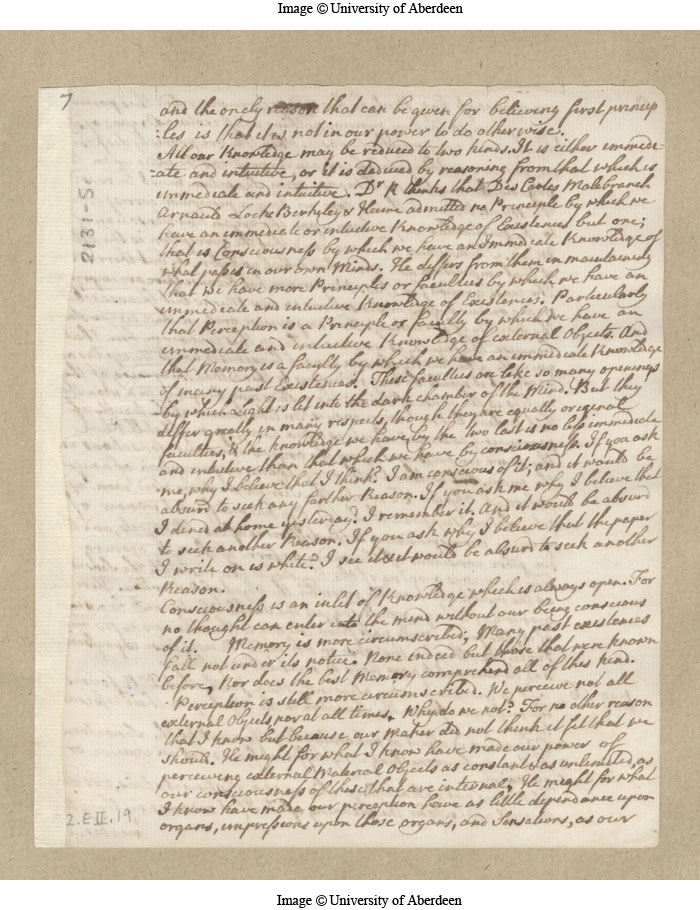 Image © University of Aberdeen
7
and the onely reason that can be given for believing first princip
:les is that it is not in our power to do otherwise.
All our Knowledge may be reduced to two kinds. It is either immedi-
-ate and intuitive, or it is deduced by reasoning from that which is
immediate and intuitive. Dr R thinks that Des Cartes Malebranch
Arnaud Locke Berkeley & Hume admitted no Principle by which we
have an immediate or intuitive Knowledge of Existences but one;
that is Consciousness by which we have an Immediate Knowledge of
what passes in our own Minds. He differs from them in maintaining
that we have more Principles or faculties by which we have an
immediate and intuitive Knowledge of Existences. Particularly
that Perception is a Principle or faculty by which we have an
immediate and intuitive Knowledge of external Objects. And
that Memory is a faculty by which we have an immediate Knowledge
of many past Existences. These faculties are like so many openings
by which Light is let into the dark chamber of the Mind. But they
differ greatly in many respects, though they are equally original
faculties, & the knowledge we have by the two last is no less immediate
and intuitive than that which we have by consciousness. If you ask
me, why I believe that I think? I am conscious of it; and it would be
absurd to seek any farther Reason. If you ask me why I believe that
I dined at home yesterday? I remember it. And it would be absurd
to seek another Reason. If you ask why I believe that the paper
I write on is white? I see it & it would be absurd to seek another
Reason.
Consciousness is an inlet of Knowledge which is always open. For
no thought can enter into the mind without our being conscious
of it. Memory is more circumscribed; Many past existences
fall not under its notice. None indeed but those that were known
before, Nor does the best Memory comprehend all of this kind.
Perception is still more circumscribed. We perceive not all
external Objects nor at all times. Why do we not? For no other reason
that I know but because our Maker did not think it fit that we
should. He might for what I know have made our power of
perceiving external Material Objects as constant & as unlimited, as
our consciousness of those that are internal. He might for what
I know have made our perception have as little dependance upon
organs, impressions upon those organs, and Sensations, as our
2131·5·
2.E II.19
Image © University of Aberdeen